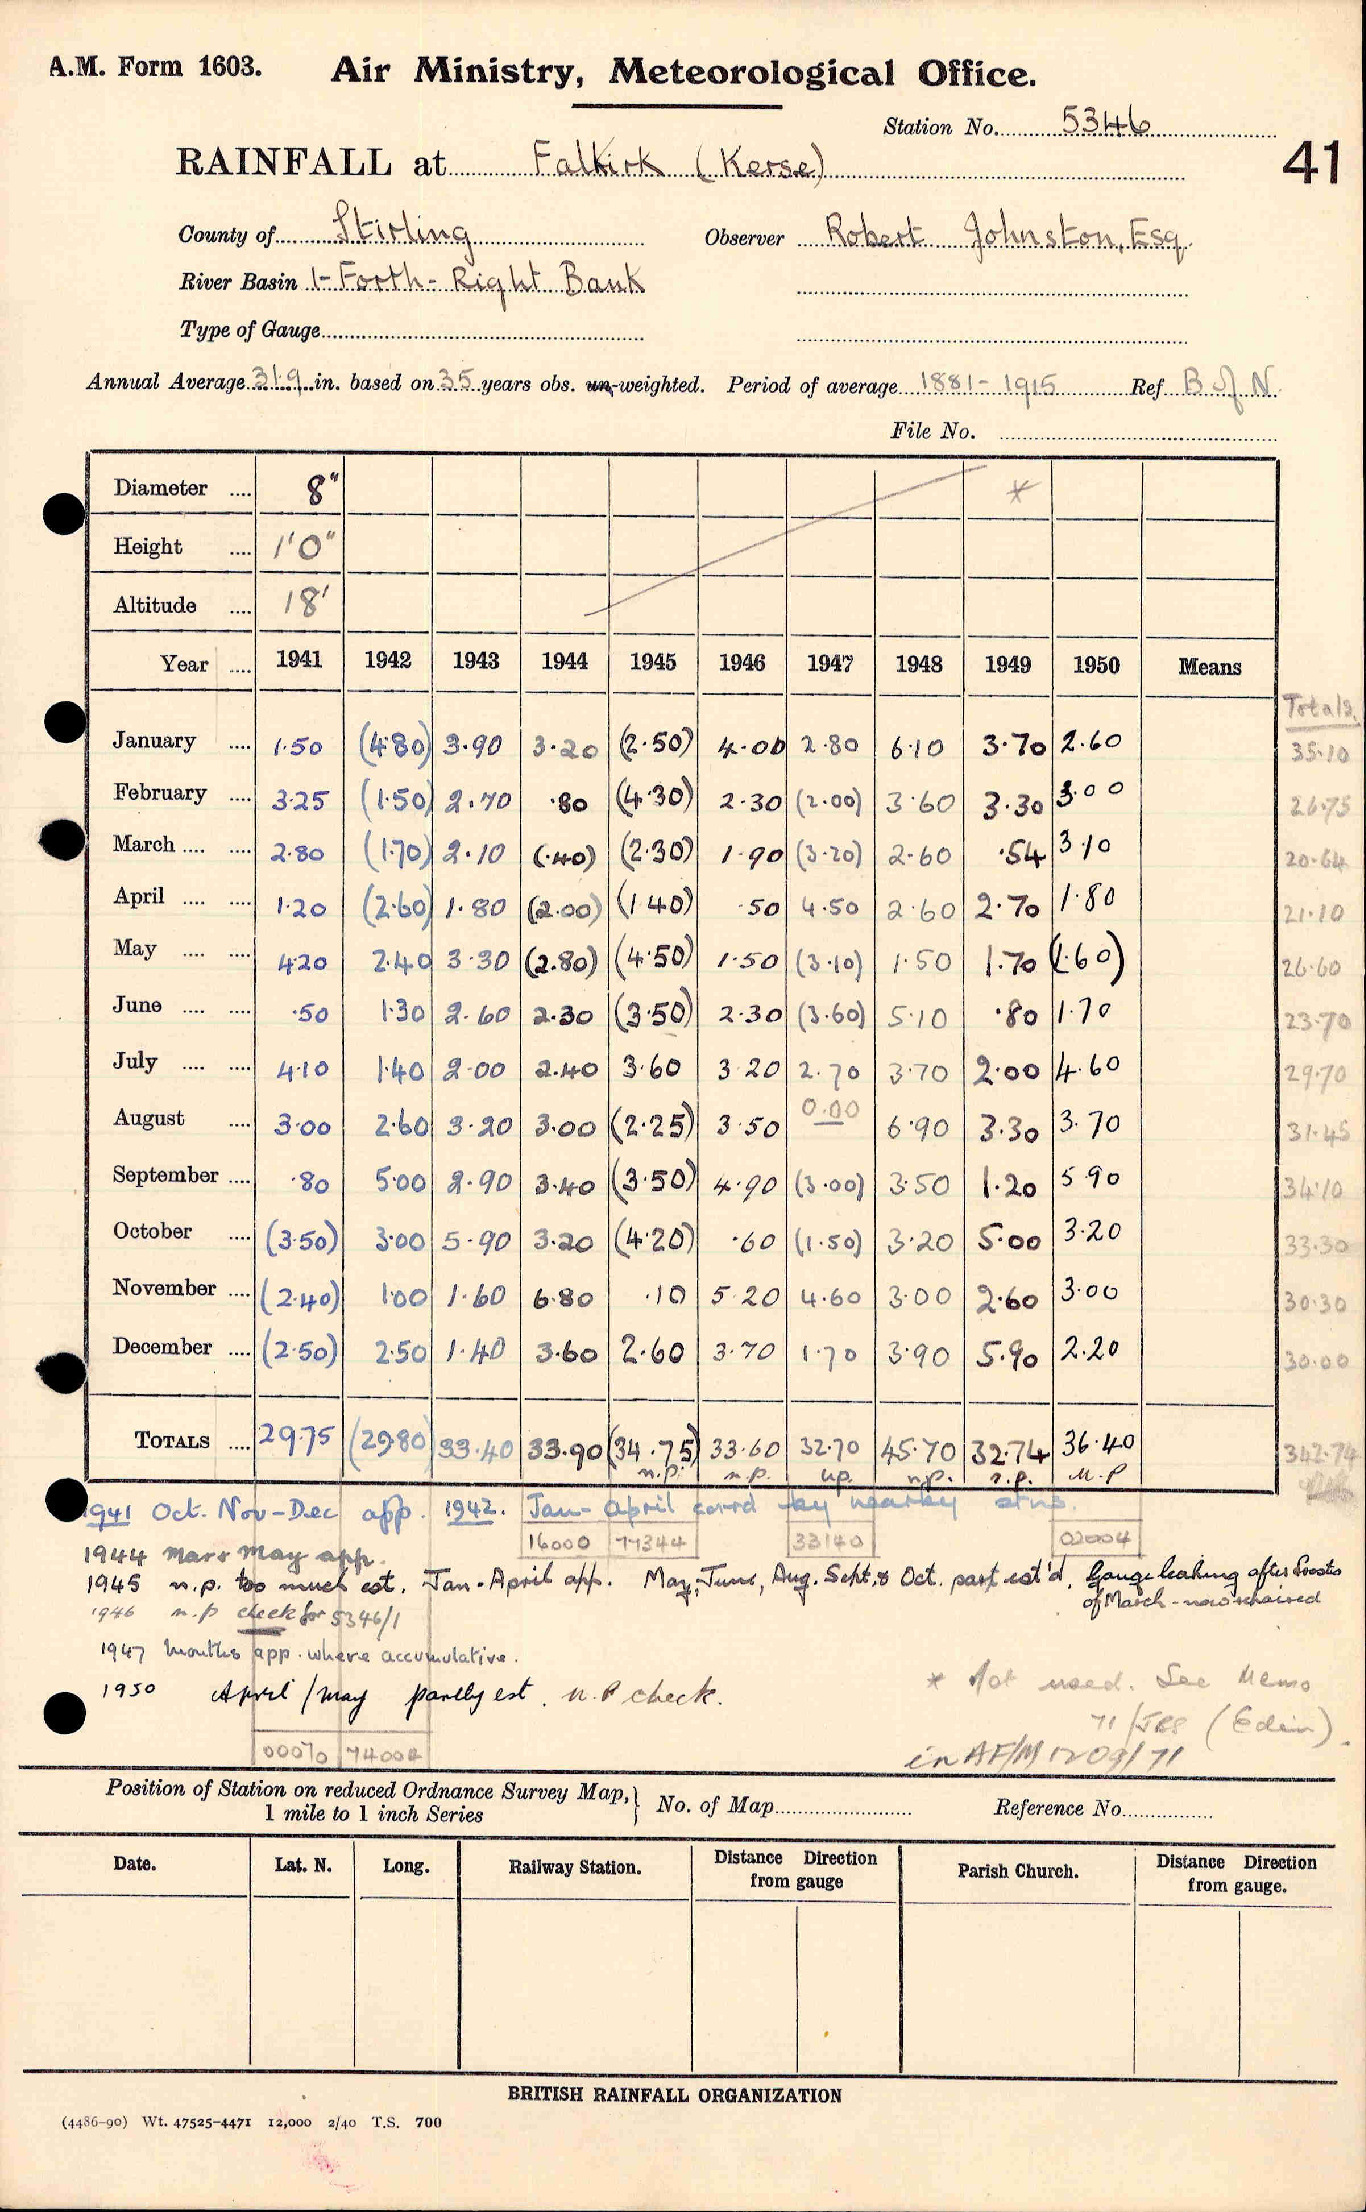 A.M. Form 1603. Air Ministry, Meteorological Office.
Station No. 5346
41
RAINFALL at Falkirk (Kerse)
County of Stirling Observer Robert Johnston, Esq.
River Basin 1-Forth-Right Bank
Type of Gauge
Annual Average 31.9 in. based on 35 years obs. un-weighted. Period of average 1881-1915 Ref B of N.
File No.
Diameter .... 8" *
Height .... 1'0"
Altitude .... 18'
Year .... 1941 1942 1943 1944 1945 1946 1947 1948 1949 1950 Means
Totals.
January .... 1.50 (4.80) 3.90 3.20 (2.50) 4.00 2.80 6.10 3.70 2.60 35.10
February .... 3.25 (1.50) 2.70 .80 (4.30) 2.30 (2.00) 3.60 3.30 3.00 26.75
March .... .... 2.80 (1.70) 2.10 (.40) (2.30) 1.90 (3.20) 2.60 .54 3.10 20.64
April .... .... 1.20 (2.60) 1.80 (2.00) (1.40) .50 4.50 2.60 2.70 1.80 21.10
May .... .... 4.20 2.40 3.30 (2.80) (4.50) 1.50 (3.10) 1.50 1.70 (1.60) 26.60
June .... .... .50 1.30 2.60 2.30 (3.50) 2.30 (3.60) 5.10 .80 1.70 23.70
July .... .... 4.10 1.40 2.00 2.40 3.60 3.20 2.70 3.70 2.00 4.60 29.70
August .... 3.00 2.60 3.20 3.00 (2.25) 3.50 0.00 6.90 3.30 3.70 31.45
September .... .80 5.00 2.90 3.40 (3.50) 4.90 (3.00) 3.50 1.20 5.90 34.10
October .... (3.50) 3.00 5.90 3.20 (4.20) .60 (1.50) 3.20 5.00 3.20 33.30
November .... (2.40) 1.00 1.60 6.80 .10 5.20 4.60 3.00 2.60 3.00 30.30
December .... (2.50) 2.50 1.40 3.60 2.60 3.70 1.70 3.90 5.90 2.20 30.00
TOTALS .... 29.75 (29.80) 33.40 33.90 (34.75) 33.60 32.70 45.70 32.74 36.40 342.74
n.p. n.p. n.p. n.p. n.p. n.p
1941 Oct. Nov-Dec app. 1942. Jan-April corrd by nearby stns.
16000 77344 33140 02004
1944 Mar & May app.
1945 n.p. too much est. Jan-April app. May, June, Aug. Sept. & Oct. part est'd. Gauge leaking after frosts
of March - now repaired
1946 n.p check for 5346/1
1947 months app. where accumulative.
1950 April/May partly est. n.P check.
* Not used. See Memo
71/JRS (Edin).
in AF/M 1209/71
00070 74002
Position of Station on reduced Ordnance Survey Map, } No. of Map Reference No.
1 mile to 1 inch Series
Date. Lat. N. Long. Railway Station. Distance Direction from gauge Parish Church. Distance Direction from gauge.
BRITISH RAINFALL ORGANIZATION
(4486-90) Wt. 47525-4471 12,000 2/40 T.S. 700